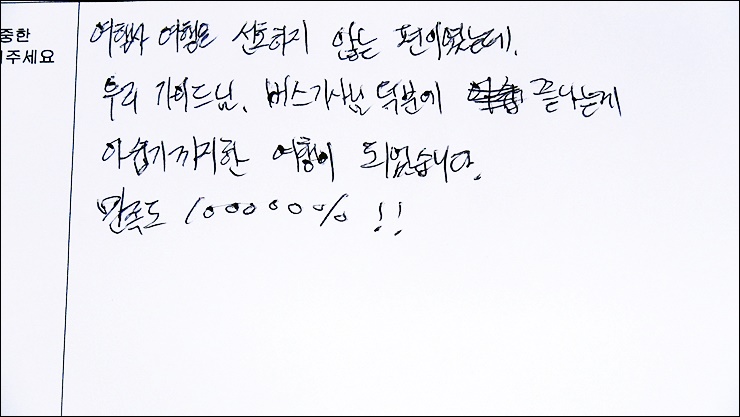 중한
주세요
여행사 여행은 선호하지 않는 편이였는데.
우리 가이드님, 버스기사님 덕분에 끝나는게
아쉽기까지한 여행이 되었습니다.
만족도 100000% !!